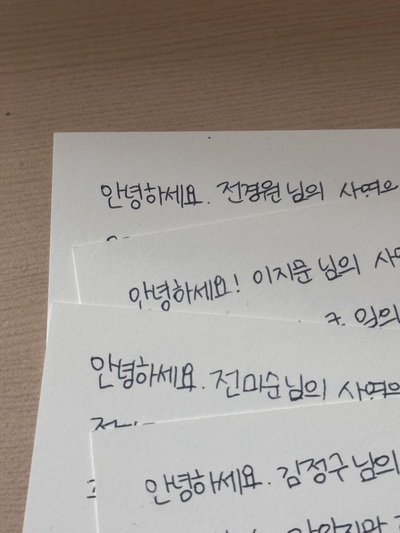 안녕하세요. 전경원님의 사연으
안녕하세요! 이지문님의 사
안녕하세요. 전미순님의 사연으
안녕하세요. 김정구님의